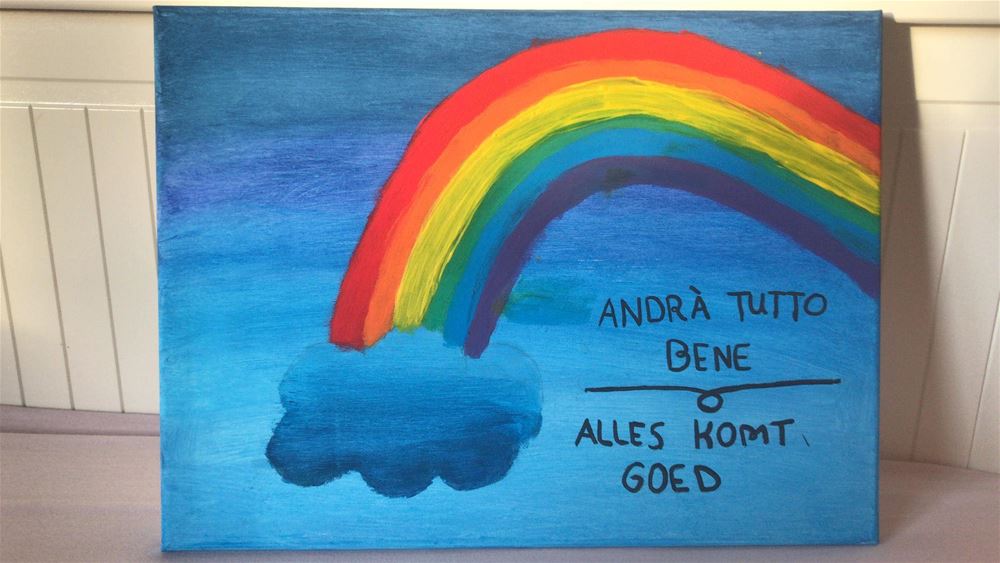 ANDRÀ TUTTO
BENE
ALLES KOMT
GOED